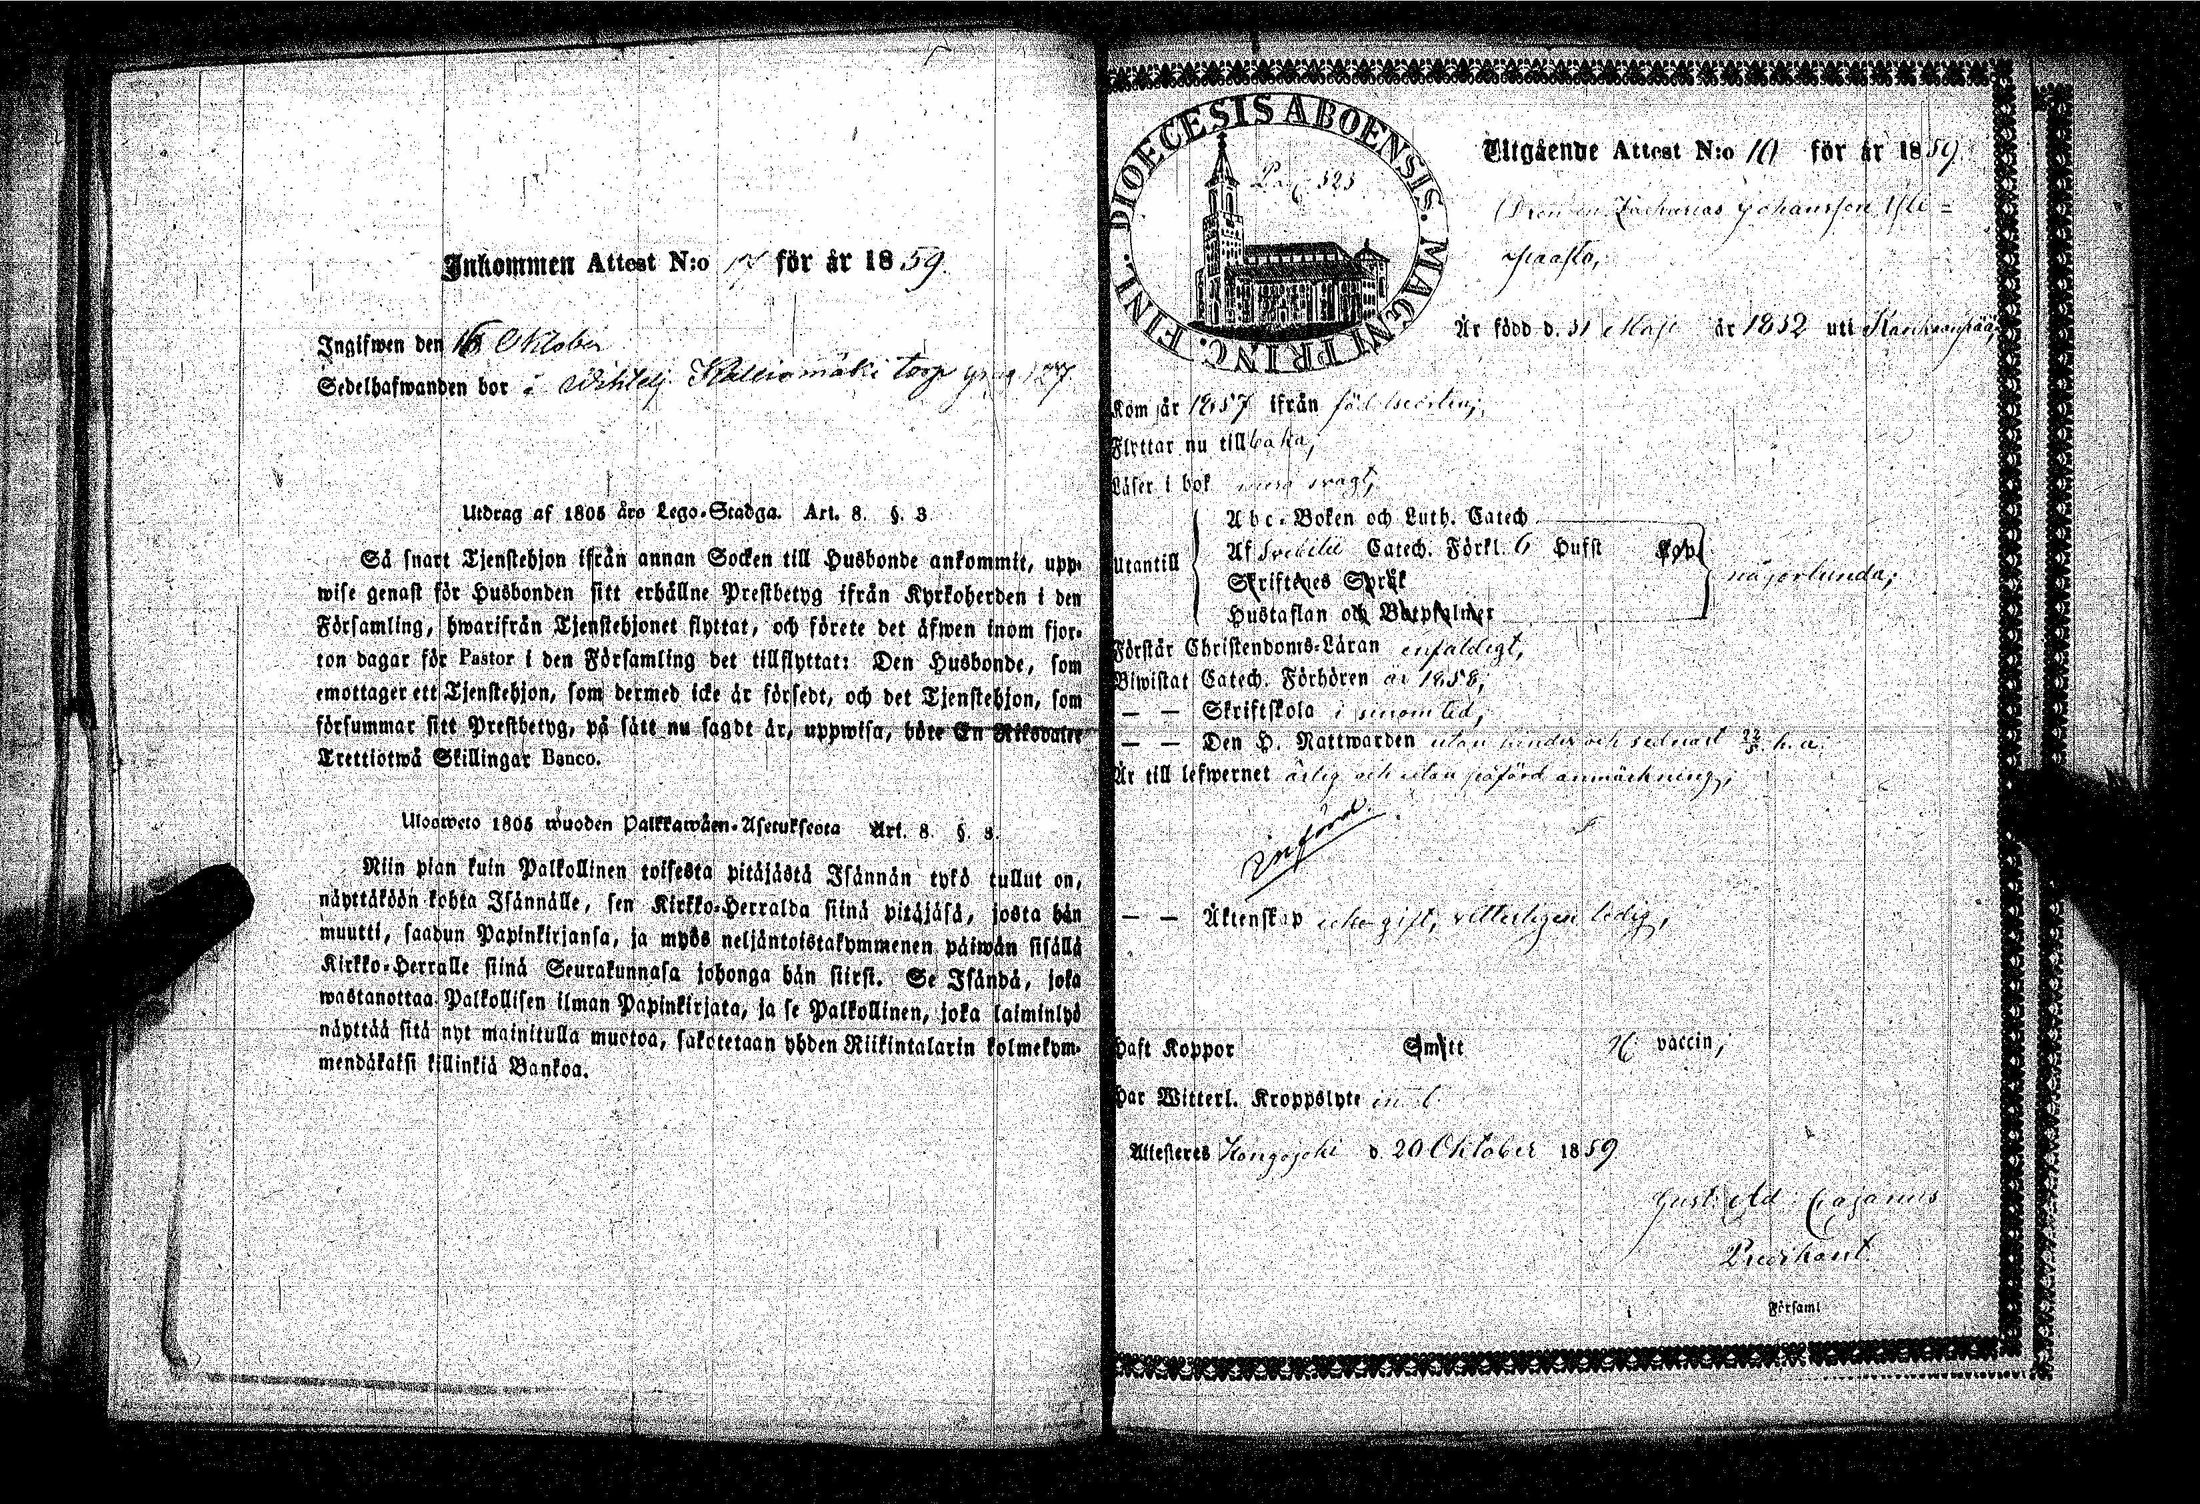 Inkommen Attest N:o 17 för år 1859.
Ingifwen den 16 Oktober
Sedelhafwanden bor i Kalliomäki torp 127
Utdrag af 1805 års Lego-Stadga. Art. 8. §. 3
Så snart Tjenstehjon ifrån annan Socken till Husbonde ankommit, upp-
wise genast för Husbonden sitt erhållne Prestbetyg ifrån Kyrkoherden i den
Församling, hwarifrån Tjenstehjonet flyttat, och förete det äfwen inom fjor-
ton dagar för Pastor i den Församling det tillflyttat: Den Husbonde, som
emottager ett Tjenstehjon, som dermed icke är försedt, och det Tjenstehjon, som
försummar sitt Prestbetyg, på sätt nu sagdt är, uppwisa, böte En Riksdaler
Trettiotwå Skillingar Banco.
Ulosweto 1805 wuoden Palkkawäen-Asetuksesta Art. 8. §. 3.
Niin pian kuin Palkollinen toisesta pitäjästä Isännän tykö tullut on,
näyttäköön kohta Isännälle, sen Kirkko-Herralda siinä pitäjäsä, josta hän
muutti, saadun Papinkirjansa, ja myös neljäntoistakymmenen päiwän sisällä
Kirkko-Herralle siinä Seurakunnasa johonga hän siirsi. Se Isändä, joka
wastanottaa Palkollisen ilman Papinkirjata, ja se Palkollinen, joka laiminlyö
näyttää sitä nyt mainitulla muotoa, sakotetaan yhden Riikintalarin kolmekym-
mendäkaksi killinkiä Bankoa.
DIOECESIS ABOENSIS. MAGNI PRINC. FINL.
Pag 323
Utgående Attest N:o 10 för år 1859.
Drengen Zacharias Johansson Yli-
Är född d. 31 Maji år 1832 uti Kankaanpää,
Kom år 1857 ifrån födelseorten;
Flyttar nu tillbaka;
Läser i bok svagt,
Utantill
Abc-Boken och Luth. Catech
Af Svebilii Catech. Förkl. 6 Hufst
Skriftenes Språk
Hustaflan och Botpsalmer
någorlunda;
Förstår Christendoms-Läran enfaldigt,
Biwistat Catech. Förhören år 1858,
— — Skriftskola i sinom tid,
— — Den H. Nattwarden utan hinder och sednast h. a.
Är till lefwernet ärlig och utan påförd anmärkning,
Införd.
— — Äktenskap icke gift, vitterligen ledig,
Haft Koppor Smitt vaccin;
Har Witterl. Kroppslyte intet
Attesteres Hongojoki d. 20 Oktober 1859
Gust. Ad. Cajanus
Predikant
i Församl